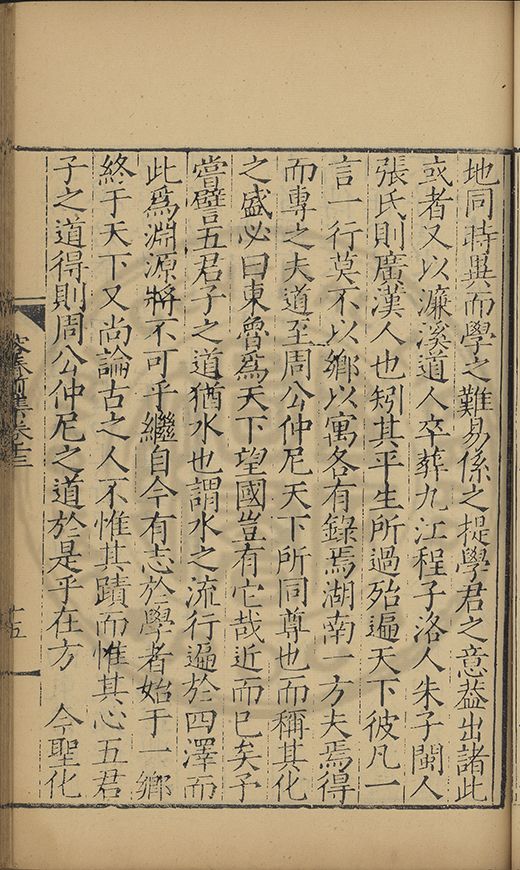 地同時異而學之難易係之提學君之意葢出諸此
或者又以濂溪道人卒葬九江程子洛人朱子閩人
張氏則廣漢人也矧其平生所過殆遍天下彼凡一
言一行莫不以鄉以寓各有錄焉湖南一方夫焉得
而專之夫道至周公仲尼天下所同尊也而稱其化
之盛必曰東魯爲天下望國豈有它哉近而已矣予
嘗譬五君子之道猶水也謂水之流行遍於四澤而
此爲淵源將不可乎繼自今有志於學者始于一鄉
終于天下又尚論古之人不惟其蹟而惟其心五君
子之道得則周公仲尼之道於是乎在方　今聖化
前集卷十三
十五